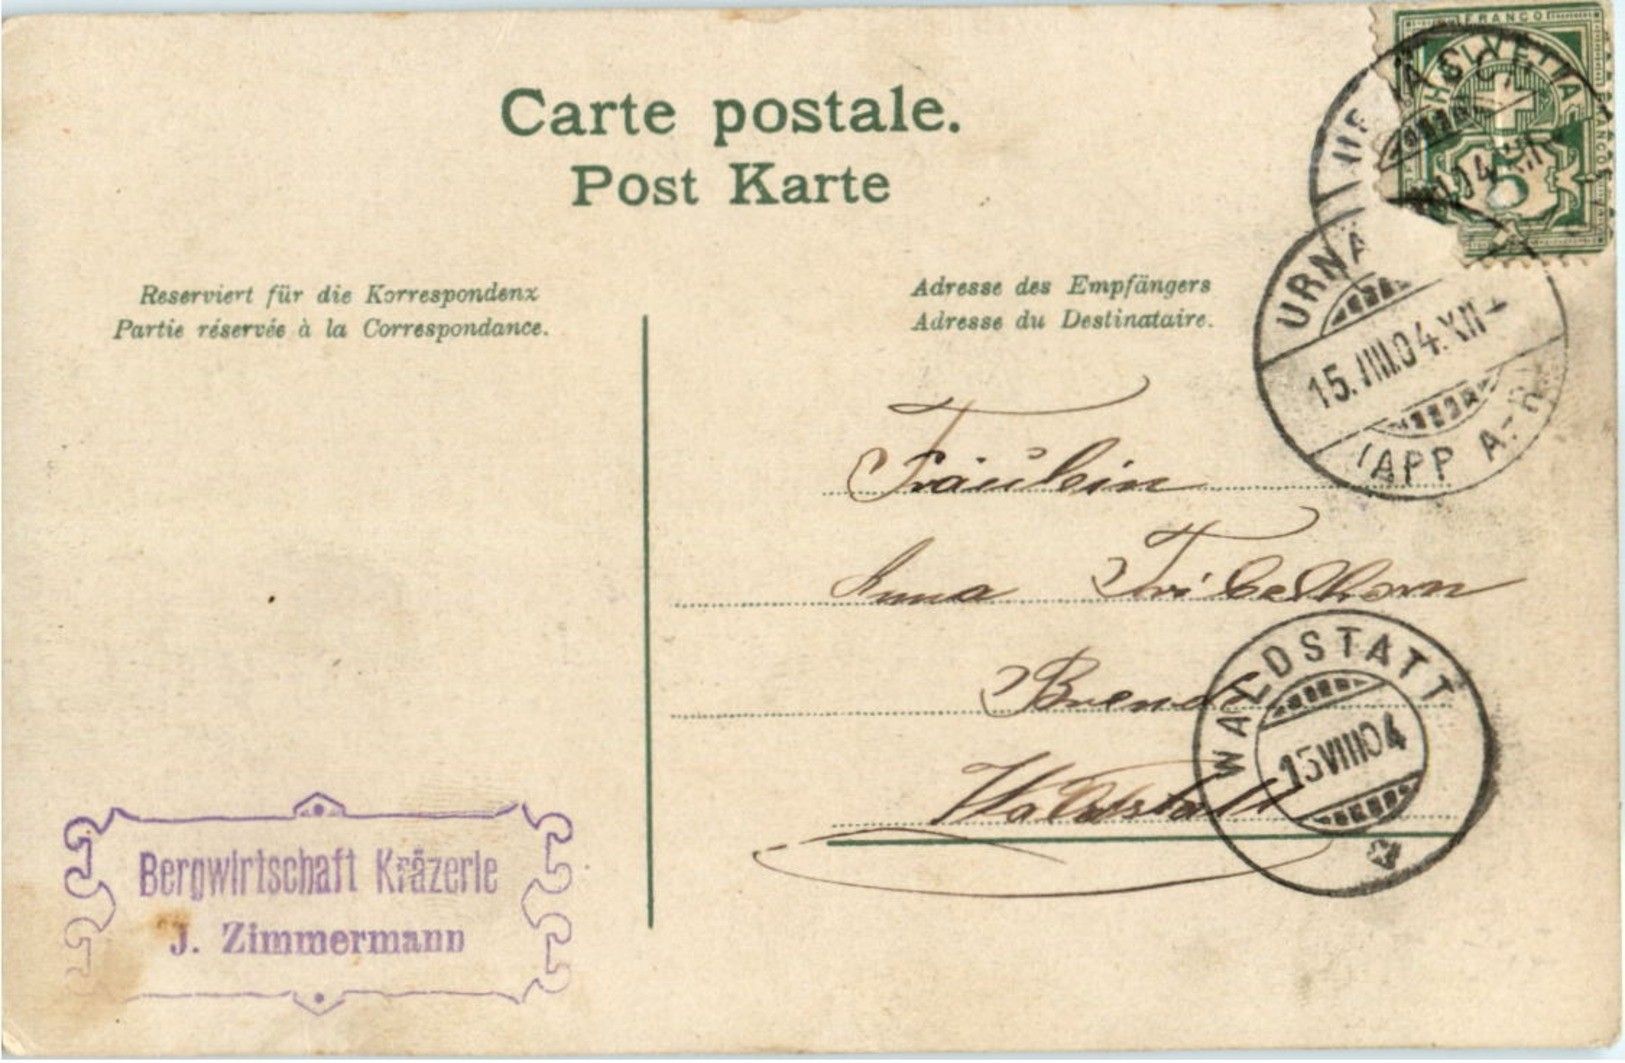 Carte postale.
Post Karte
FRANCO
HELVETIA
5
URNÄ
15.VIII.04.XII
(APP A.-R
Reserviert für die Korrespondenz
Partie réservée à la Correspondance.
Adresse des Empfängers
Adresse du Destinataire.
Fräulein
Anna Tribelhorn
Waldstatt
WALDSTATT
15VIII04
Bergwirtschaft Kräzerle
J. Zimmermann